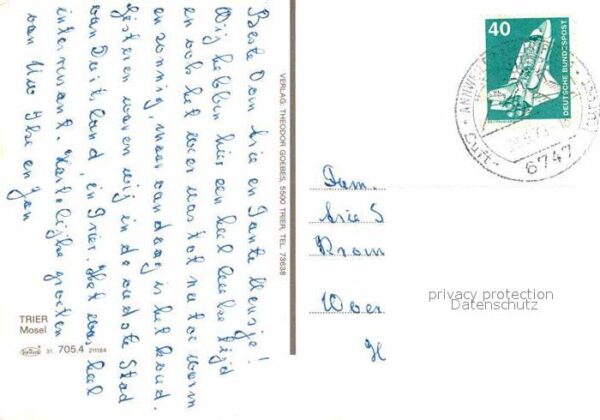 Beste Oom Arie en Tante Mensje!
Wij hebben hier een heel leuke tijd
en ook het weer was tot nu toe warm
en zonnig, maar vandaag is het koud.
Gisteren waren wij in de oudste Stad
van Duitsland, in Trier. Het was heel
interessant. Hartelijke groeten
van Uw Ilse en Jan
TRIER
Mosel
Krüger
31 705.4 211184
VERLAG: THEODOR GOEBES, 5500 TRIER, TEL. 73638
40
DEUTSCHE BUNDESPOST
ANNWEILER
Luft-
6747
Fam.
Arie S
Krom
Woer
privacy protection
Datenschutz